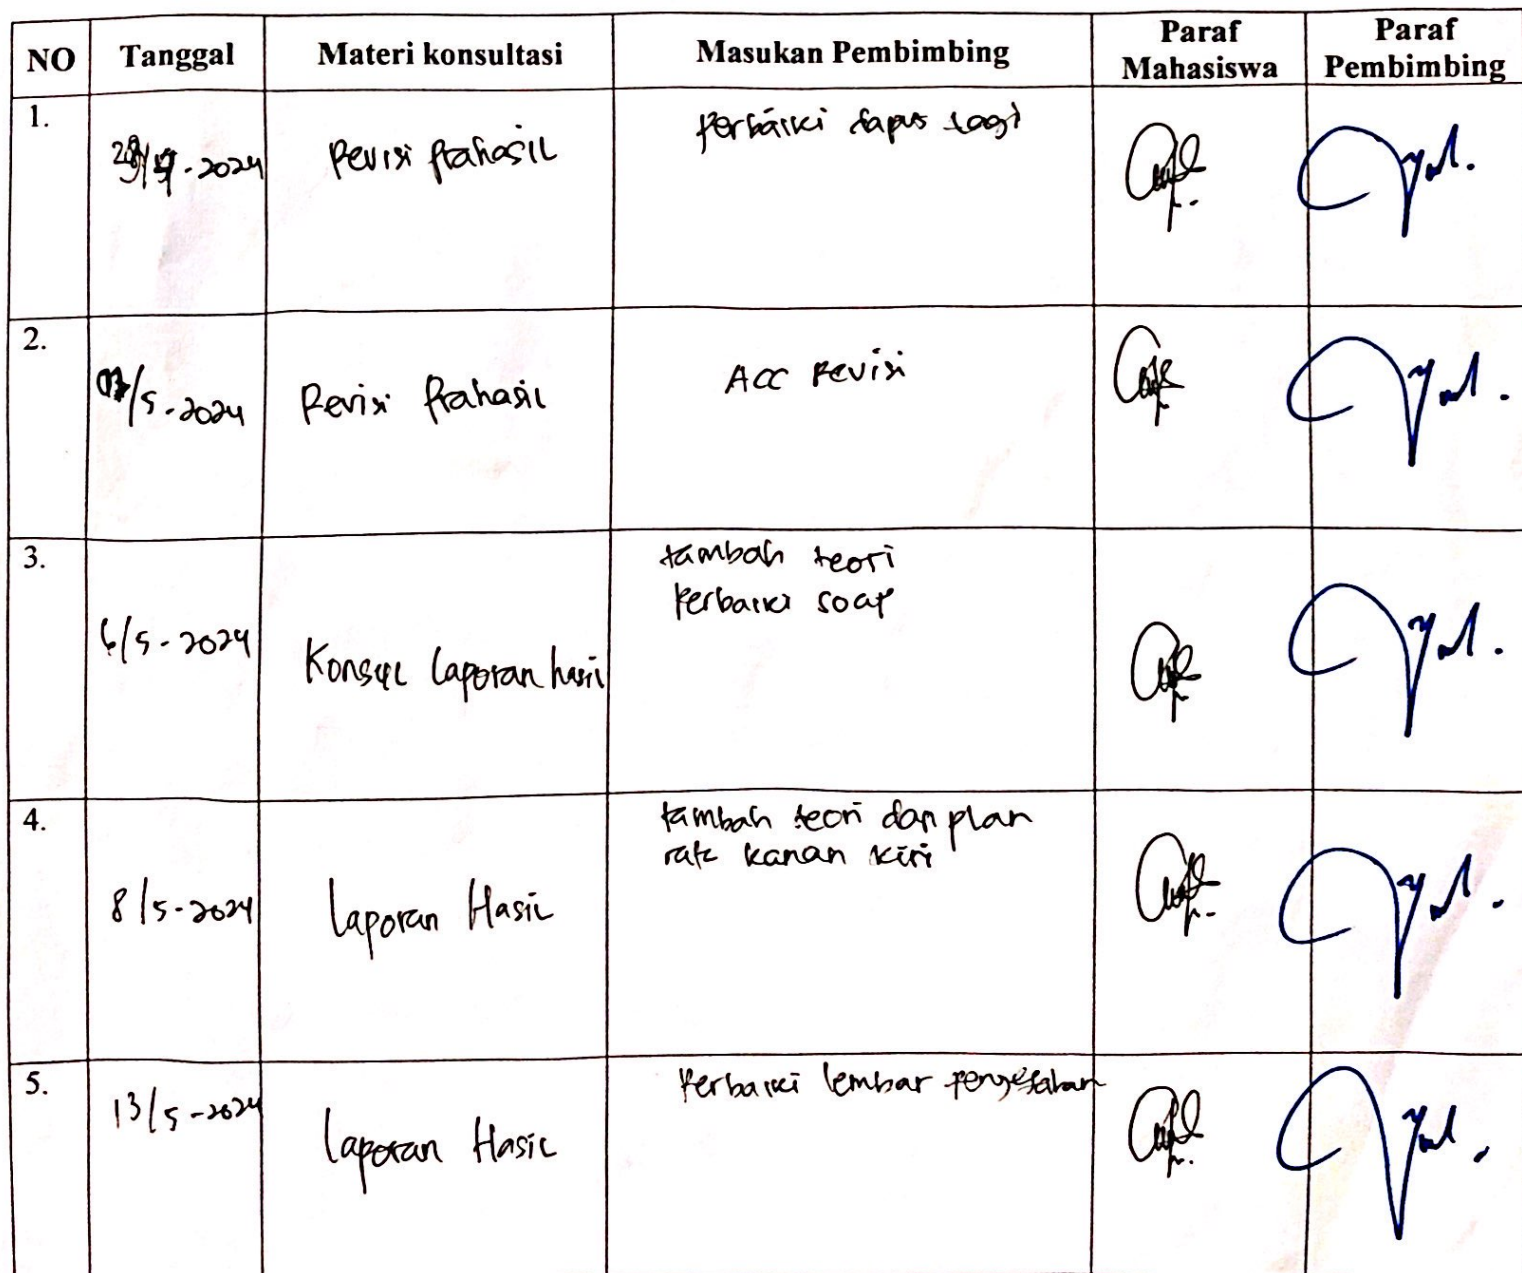 NO Tanggal Materi konsultasi Masukan Pembimbing Paraf Mahasiswa Paraf Pembimbing
1. -2024 Revisi Prahasil Perbaiki dapus lagi
2. /5-2024 Revisi Prahasil ACC Revisi
3. 6/5-2024 Konsul laporan hasil tambah teori
Perbaiki soap
4. 8/5-2024 Laporan Hasil tambah teori dan plan
kanan kiri
5. 13/5-2024 Laporan Hasil Perbaiki lembar pengesahan